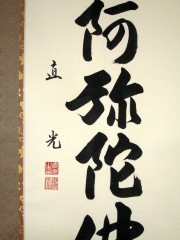 阿弥陀佛
直光